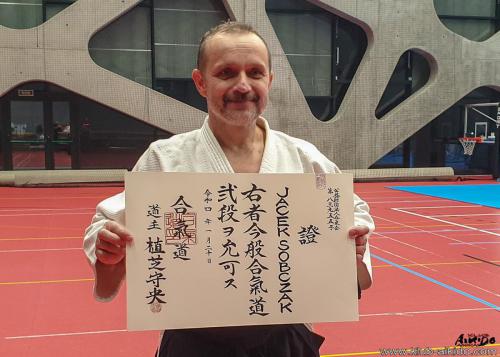 證
JACEK SOBCZAK
右者今般合氣道
貳段ヲ允可ス
令和四年一月二十日
合氣道
道主 植芝守央
AiKiDo
www.klub-aikido.com